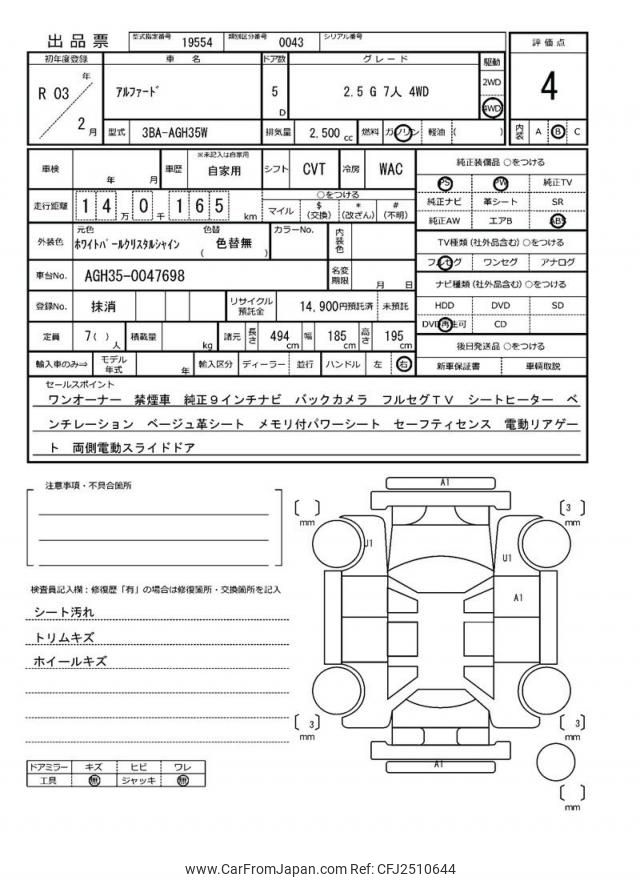 出品票 型式指定番号 19554 類別区分番号 0043 シリアル番号
評価点
4
初年度登録 車名 ドア数 グレード 駆動
R 03 年 2 月 アルファード 5 D 2.5 G 7人 4WD 2WD 4WD
型式 3BA-AGH35W 排気量 2,500 cc 燃料 ガソリン 軽油 ( ) 内装 A B C
車検 年 月 車歴 ※未記入は自家用 自家用 シフト CVT 冷房 WAC
走行距離 14万0千165 km
○をつける
マイル $(交換) *(改ざん) #(不明)
外装色 元色 ホワイトパールクリスタルシャイン 色替 ( 色替無 ) カラーNo. 内装色
車台No. AGH35-0047698 名変期限 月 日
登録No. 抹消 リサイクル預託金 14,900円預託済 未預託
定員 7( )人 積載量 kg 諸元 長さ 494 cm 幅 185 cm 高さ 195 cm
輸入車のみ⇒ モデル年式 年 輸入区分 ディーラー 並行 ハンドル 左 右
純正装備品 ○をつける
PS PW 純正TV
純正ナビ 革シート SR
純正AW エアB ABS
TV種類(社外品含む) ○をつける
フルセグ ワンセグ アナログ
ナビ種類(社外品含む) ○をつける
HDD DVD SD
DVD再生可 CD
後日発送品 ○をつける
新車保証書 車輌取説
セールスポイント
ワンオーナー 禁煙車 純正9インチナビ バックカメラ フルセグTV シートヒーター ベ
ンチレーション ベージュ革シート メモリ付パワーシート セーフティセンス 電動リアゲー
ト 両側電動スライドドア
注意事項・不具合箇所
検査員記入欄:修復歴「有」の場合は修復箇所・交換箇所を記入
シート汚れ
トリムキズ
ホイールキズ
ドアミラー キズ ヒビ ワレ
工具 無 ジャッキ 無
A1
[ ] mm
[ 3 ] mm
U1
U1
A1
[ 3 ] mm
[ 3 ] mm
A1
[ ] mm
www.CarFromJapan.com Ref: CFJ2510644